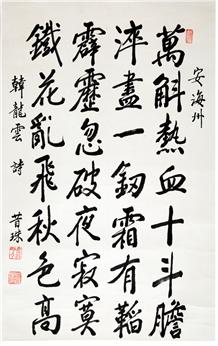 安海州
萬斛熱血十斗膽
淬盡一劒霜有韜
霹靂忽破夜寂寞
鐵花亂飛秋色高
韓龍雲 詩
昔珠